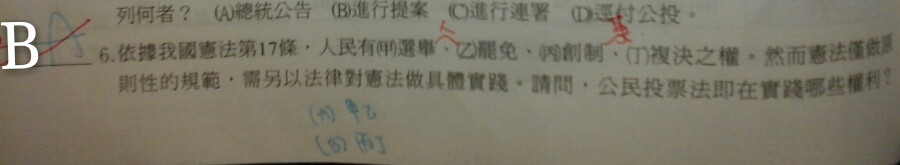 列何者? (A)總統公告 (B)進行提案 (C)進行連署 (D)逕付公投。
B
6.依據我國憲法第17條,人民有(甲)選舉、(乙)罷免、(丙)創制、(丁)複決之權。然而憲法僅做原
人 事
則性的規範,需另以法律對憲法做具體實踐。請問,公民投票法即在實踐哪些權利?
(A) 甲乙
(B) 丙丁